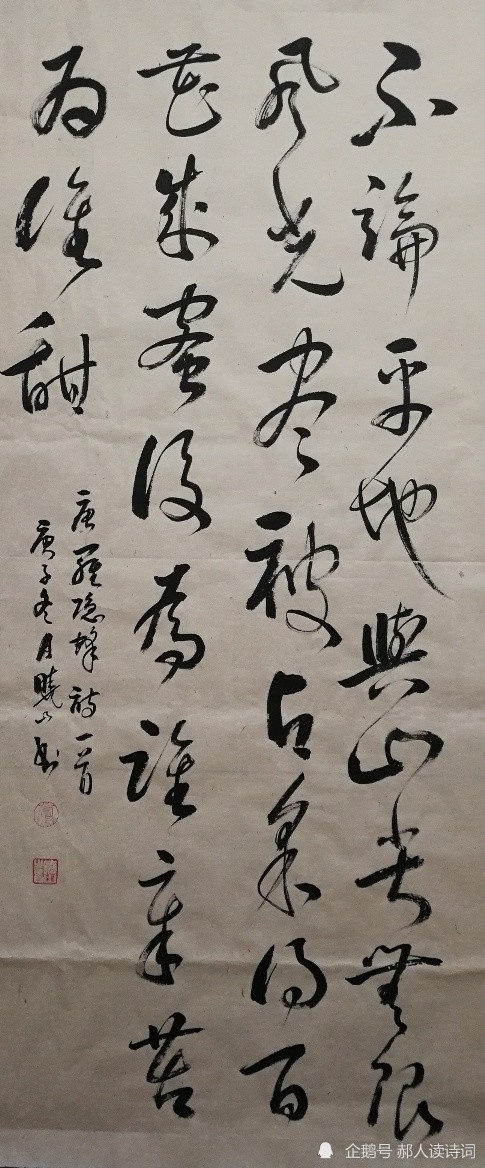 不論平地與山尖無限
風光盡被占采得百
花成蜜後為誰辛苦
為誰甜
唐羅隱蜂詩一首
庚子冬月曉山書
企鹅号 郝人读诗词